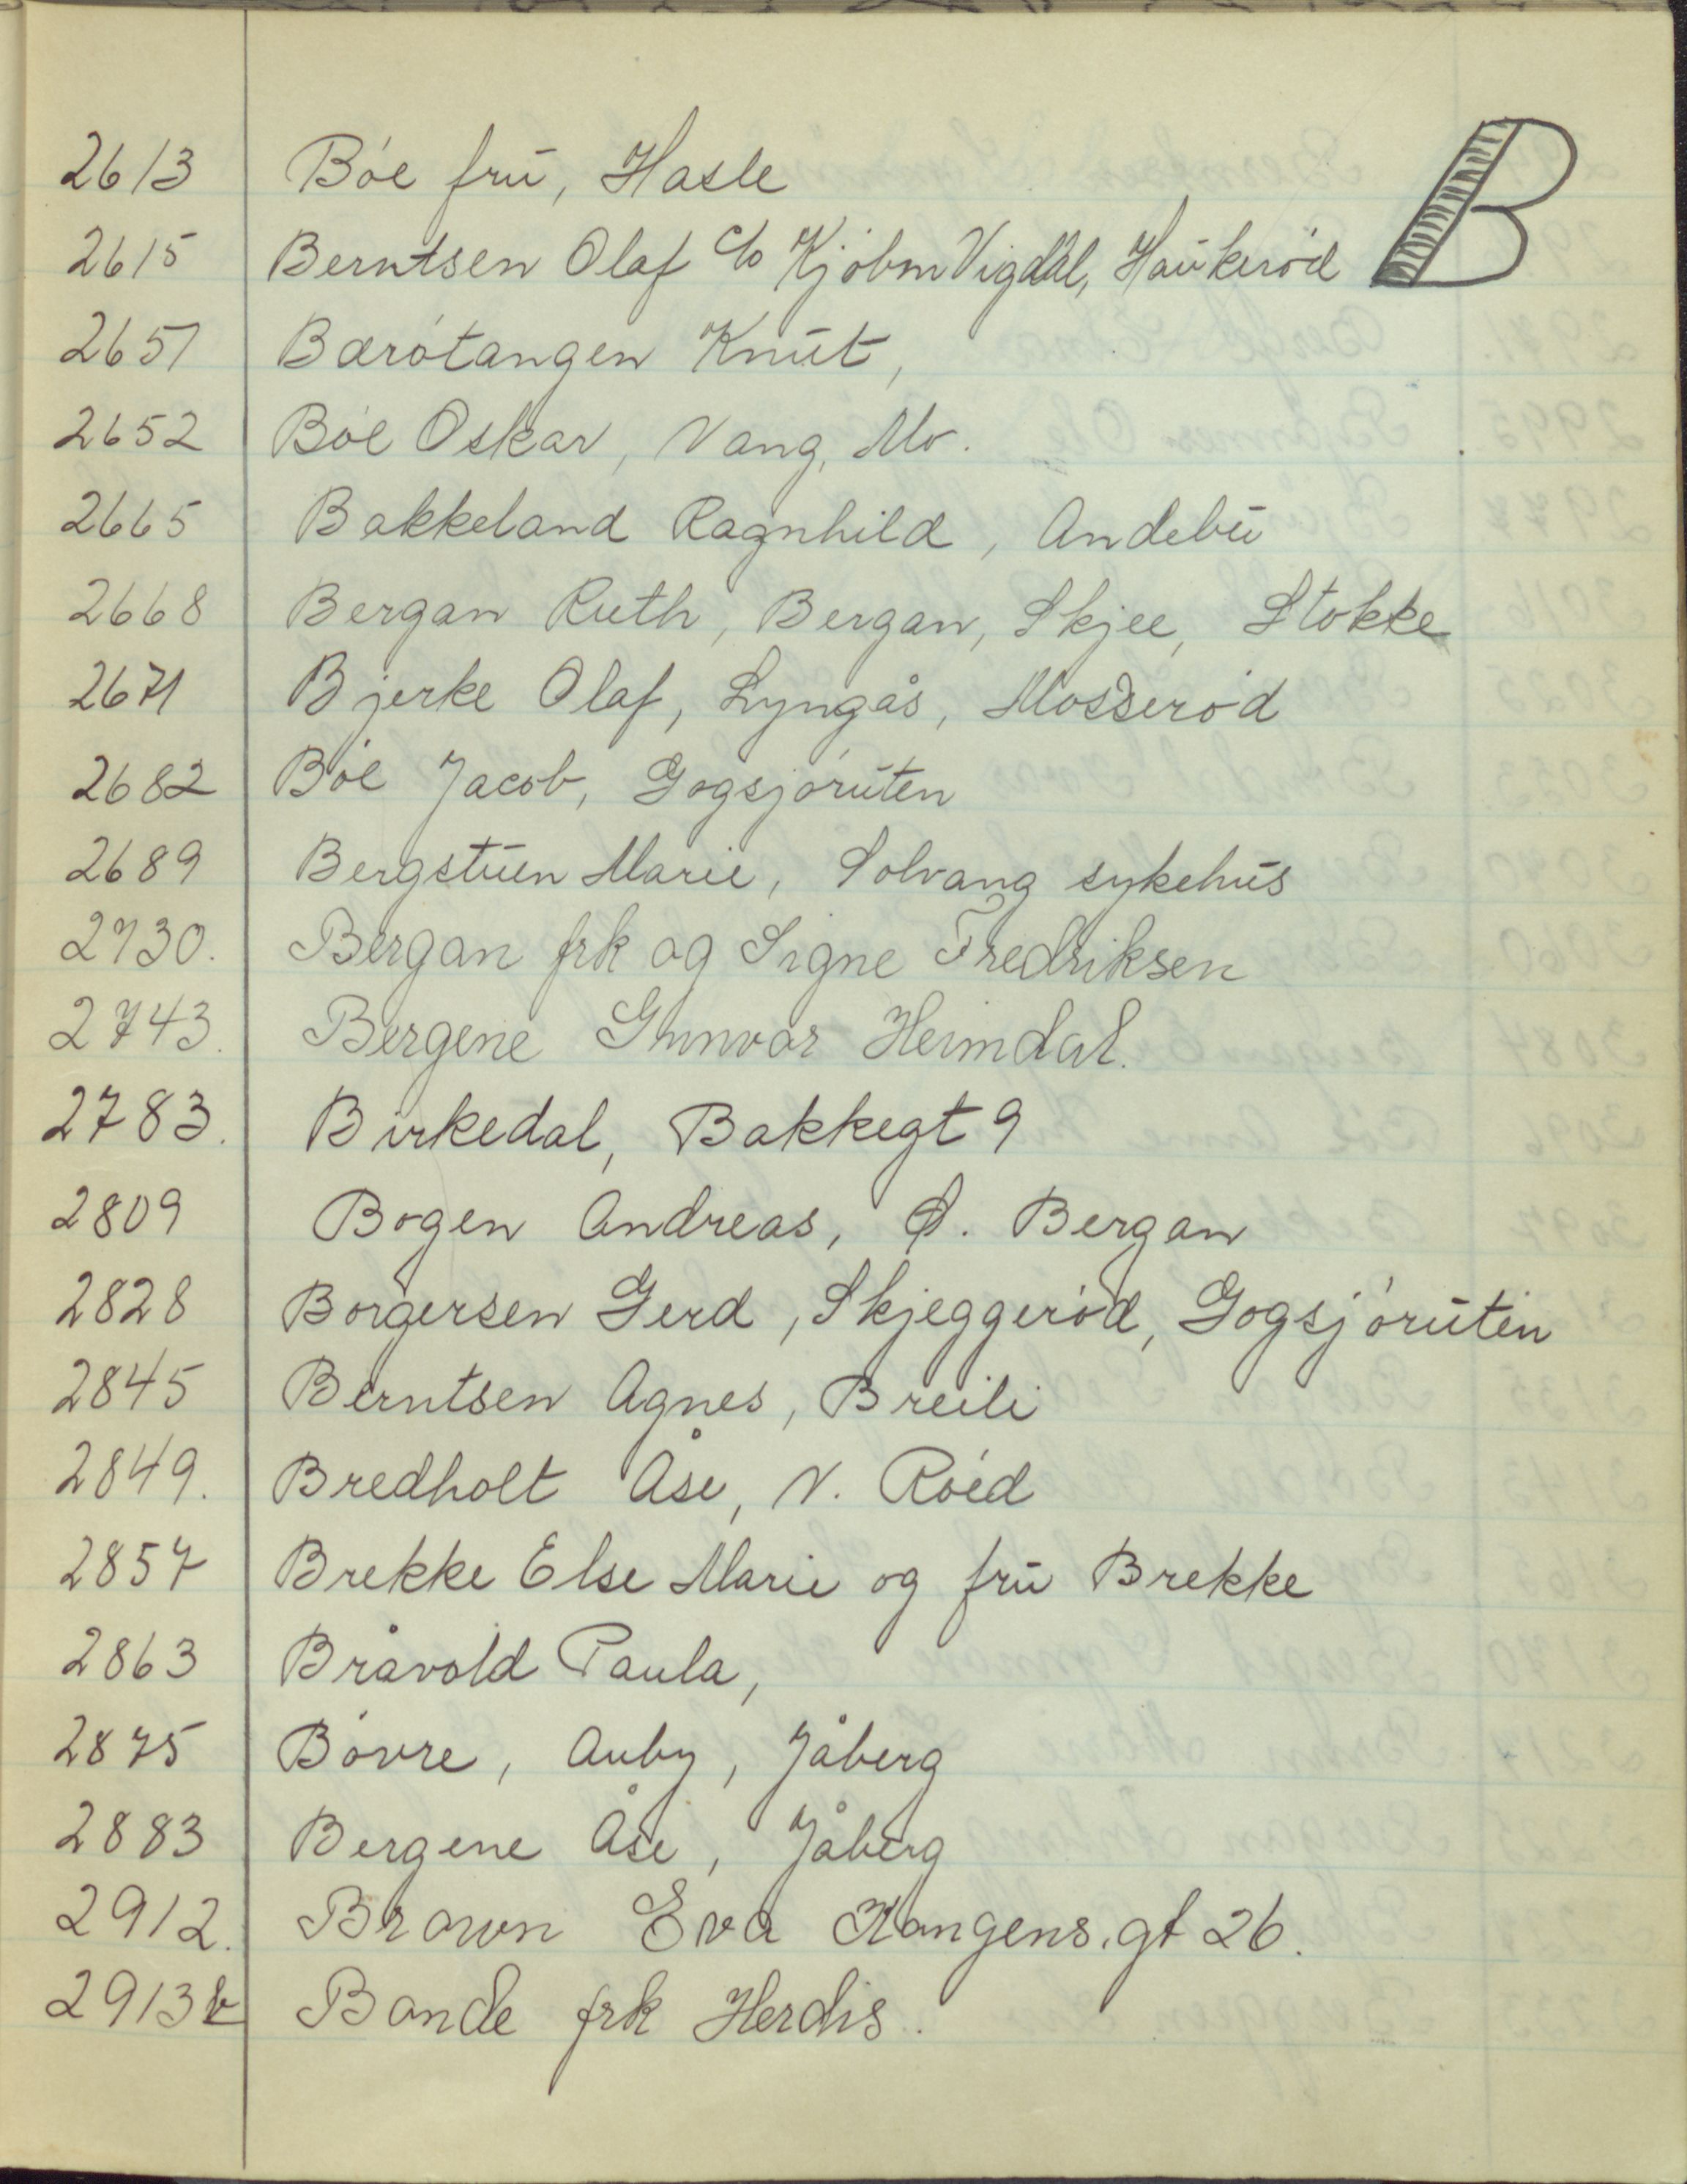 B
2613 Bøe fru, Hasle
2615 Berntsen Olaf c/o Kjøbm Vigdal, Haukerød
2651 Bærøtangen Knut,
2652 Bøe Oskar, Vang, Mo.
2665 Bakkeland Ragnhild, Andebu
2668 Bergan Ruth, Bergan, Skjee, Stokke
2671 Bjerke Olaf, Lyngås, Mosserød
2682 Bøe Jacob, Gogsjøruten
2689 Bergstuen Marie, Solvang sykehus
2730. Bergan frk og Signe Fredriksen
2743. Bergene Gunvor Heimdal.
2783. Birkedal, Bakkegt 9
2809 Bogen Andreas, Ø. Bergan
2828 Borgersen Gerd, Skjeggerød, Gogsjøruten
2845 Berntsen Agnes, Breili
2849. Bredholt Åse, N. Røed
2857 Brekke Else Marie og fru Brekke
2863 Bråvold Paula,
2875 Bøvre, Auby, Jåberg
2883 Bergene Åse, Jåberg
2912. Brown Eva Kongens.gt 26.
2913b Bonde frk Herdis.